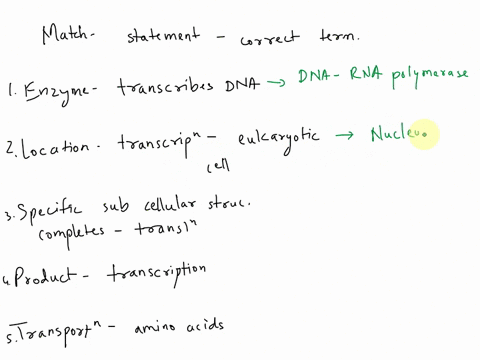 Match - statement - correct term.
1. Enzyme - transcribes DNA → DNA - RNA polymerase
2. Location - transcripⁿ - eukaryotic → Nucleu
cell
3. Specific sub cellular struc.
completes - translⁿ
4. Product - transcription
5. Transportⁿ - amino acids